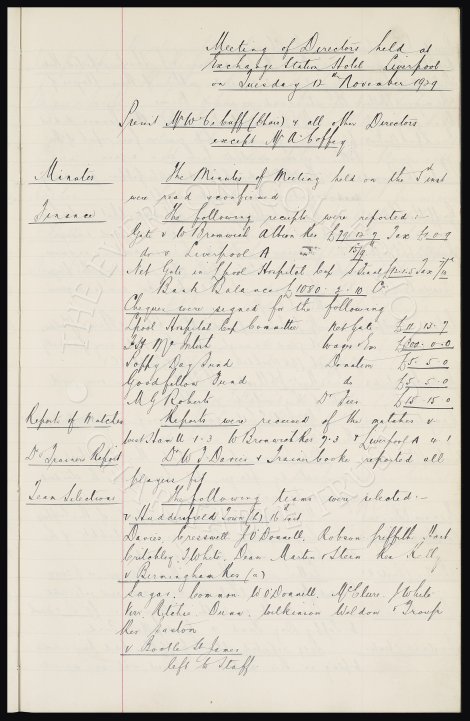 Meeting of Directors held at
Exchange Station Hotel Liverpool
on Tuesday 12th November 1929
Present Mr W. C. Cuff (Chair) & all other Directors
except Mr A. Coffey
Minutes The Minutes of Meeting held on the 5th inst
were read & confirmed
Finance The following receipts were reported :-
Gate v W Bromwich Albion Res Tax
do v Liverpool A
Net Gate in L'pool Hospital Cup Tax
Bank Balance £1080. 2. 10
Cheques were signed for the following
L'pool Hospital Cup Committee Net Gate £11. 13. 7
Wages £200. 0. 0
Poppy Day Fund Donation £5. 5. 0
Goodfellow Fund do £5. 5. 0
M G Roberts Dr Fees £15. 15. 0
Report of Matches Reports were received of the matches v
West Ham U 1-3 W Bromwich Res 7-3 & Liverpool A 4-1
Dr & Trainers Report Dr W J Davies & Trainer Cooke reported all
players fit
Team Selections The following teams were selected :-
v Huddersfield Town (h) 16th inst
Davies, Cresswell & O'Donnell, Robson Griffiths Hart
Critchley, J White, Dean Martin & Stein Res
v Birmingham Res (a)
Sagar Common W O'Donnell, McClure, J White
Ritchie, Dunn, Wilkinson Weldon & Troup
Res Easton
v Bootle St James
left to Staff